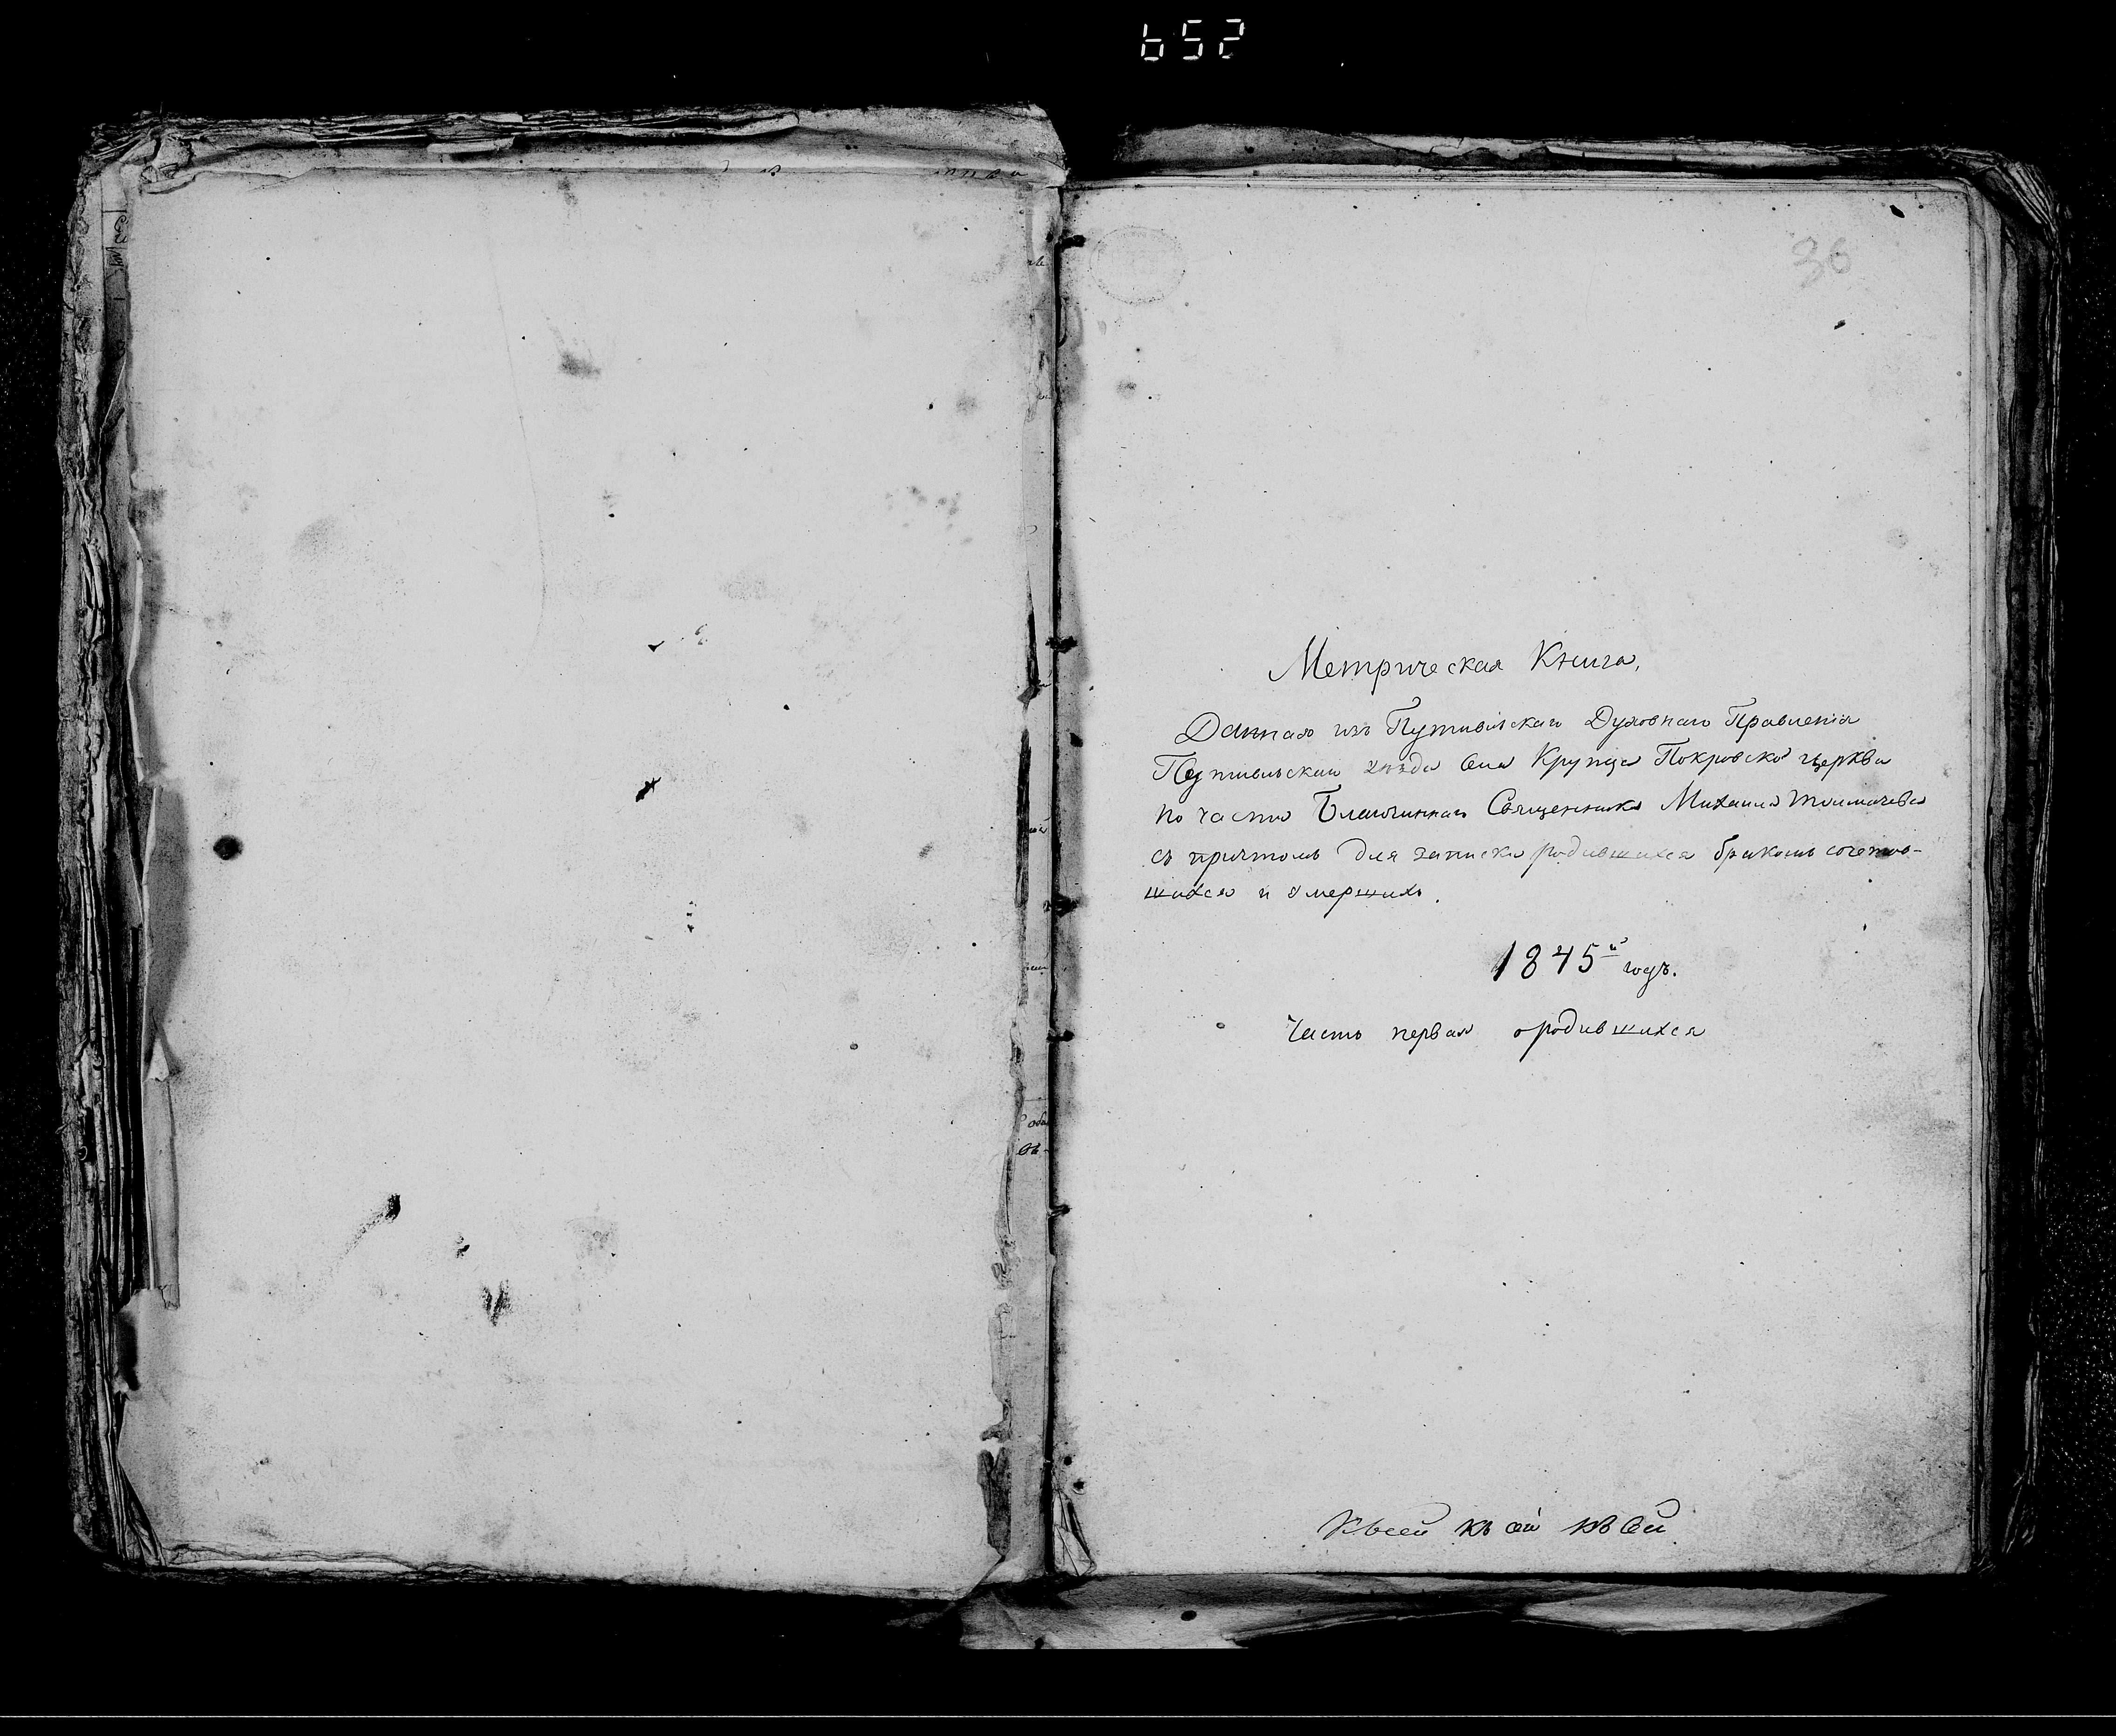 652
36
Метрическая Книга,
Данная изъ Путивльскаго Духовнаго Правленія
Путивльскаго уѣзда Села Крупца Покровской церкви
по части Благочиннаго Священника Михаила Толмачева
съ причтомъ для записки родившихся бракомъ сочетав-
шихся и умершихъ.
1845й годъ.
Часть первая о родившихся
Къ сей къ сей къ сей